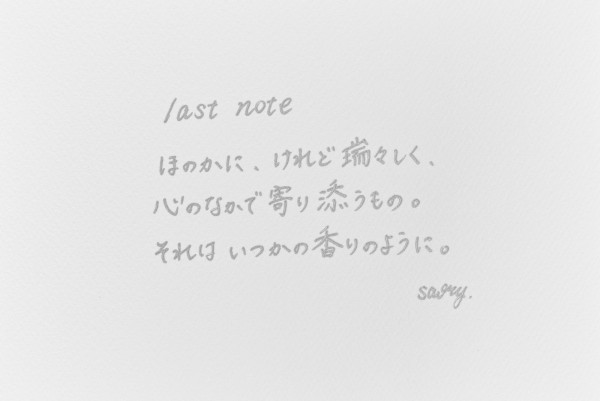 last note
ほのかに、けれど瑞々しく、
心のなかで寄り添うもの。
それは いつかの香りのように。
savry.